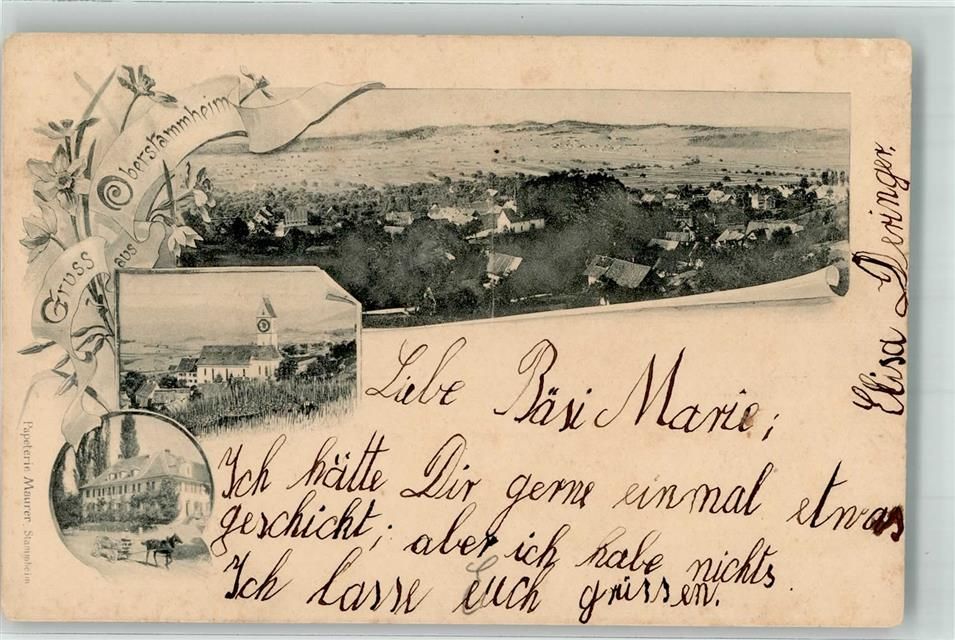 Gruss
aus
Oberstammheim
Liebe Bäsi Marie;
Ich hätte Dir gerne einmal etwas
geschickt; aber ich habe nichts.
Ich lasse euch grüssen.
Elisa Deringer.
Papeterie Maurer, Stammheim